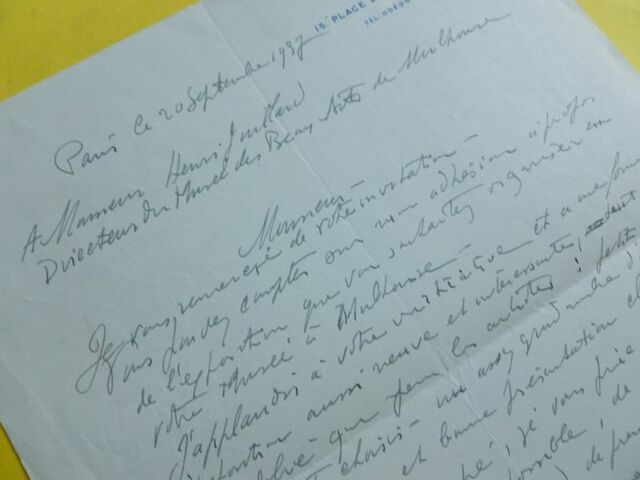 15, PLACE
TÉL. ODÉON
Paris le 20 Septembre 1937
A Monsieur Henri Juillard
Directeur du Musée des Beaux Arts de Mulhouse
Monsieur -
Je vous remercie de votre invitation -
vous pouvez compter sur mon adhésion à propos
de l'exposition que vous souhaitez organiser en
votre Musée à Mulhouse -
J'applaudis à votre initiative et à une
aussi neuve et intéressante,
que pour les artistes! petit
choisis - un assez grand nombre d'
et bonne présentation
je vous prie
possible, de